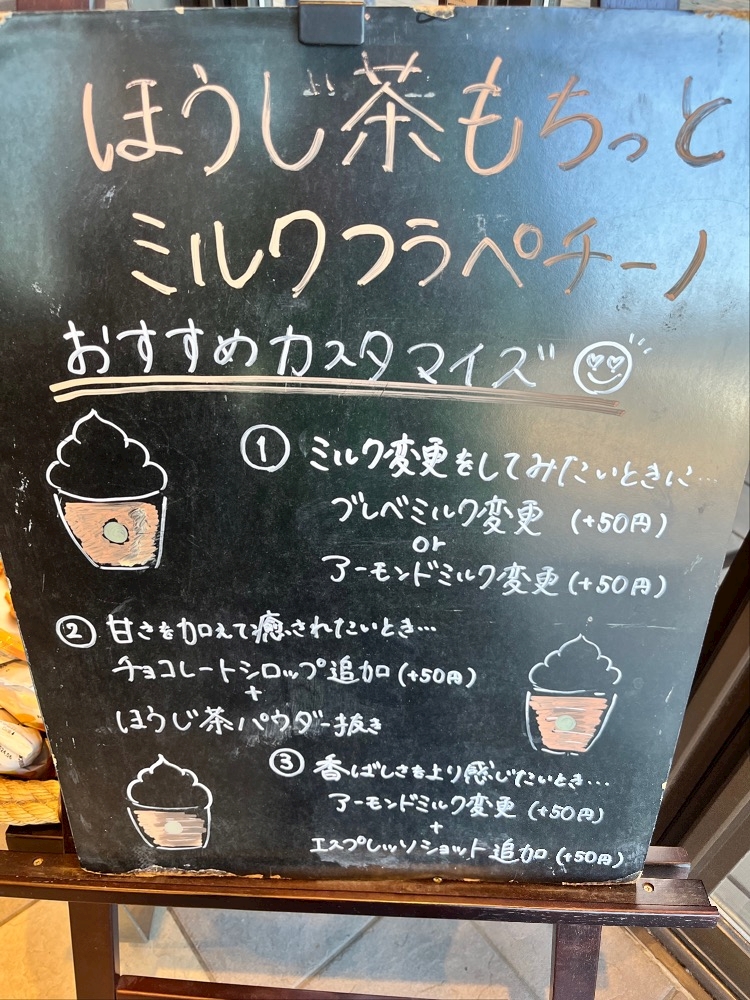 ほうじ茶もちっと
ミルクフラペチーノ
おすすめカスタマイズ
① ミルク変更をしてみたいときに…
ブレベミルク変更 (+50円)
or
アーモンドミルク変更 (+50円)
② 甘さを加えて癒されたいとき…
チョコレートシロップ追加 (+50円)
+
ほうじ茶パウダー抜き
③ 香ばしさをより感じたいとき…
アーモンドミルク変更 (+50円)
+
エスプレッソショット追加 (+50円)